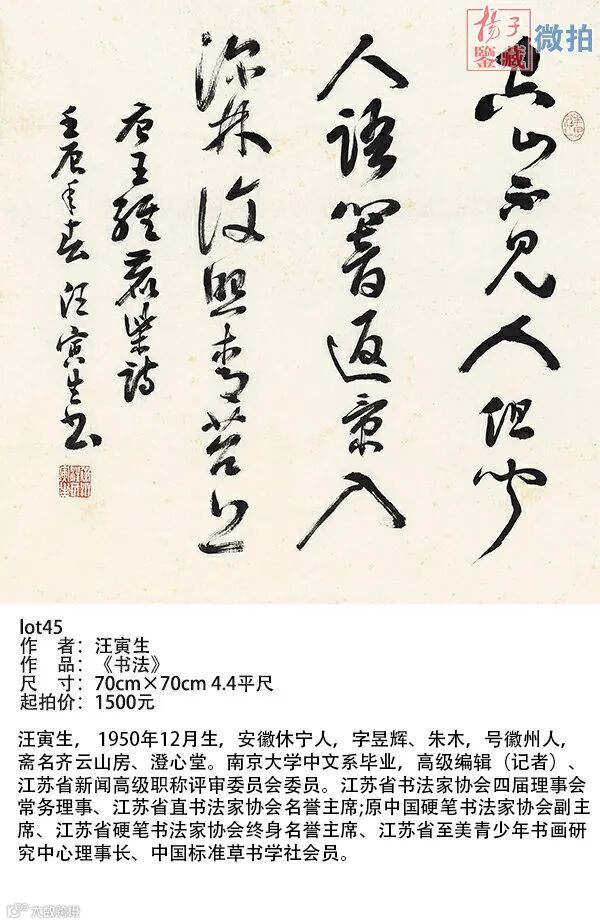 揚子
鑒藏
微拍
空山不见人但闻
人语响返景入
深林复照青苔上
唐王维鹿柴诗
壬辰年春汪寅生书
lot45
作 者：汪寅生
作 品：《书法》
尺 寸：70cm×70cm 4.4平尺
起拍价：1500元
汪寅生， 1950年12月生，安徽休宁人，字昱辉、朱木，号徽州人，
斋名齐云山房、澄心堂。南京大学中文系毕业，高级编辑（记者）、
江苏省新闻高级职称评审委员会委员。江苏省书法家协会四届理事会
常务理事、江苏省直书法家协会名誉主席;原中国硬笔书法家协会副主
席、江苏省硬笔书法家协会终身名誉主席、江苏省至美青少年书画研
究中心理事长、中国标准草书学社会员。
大数跨境